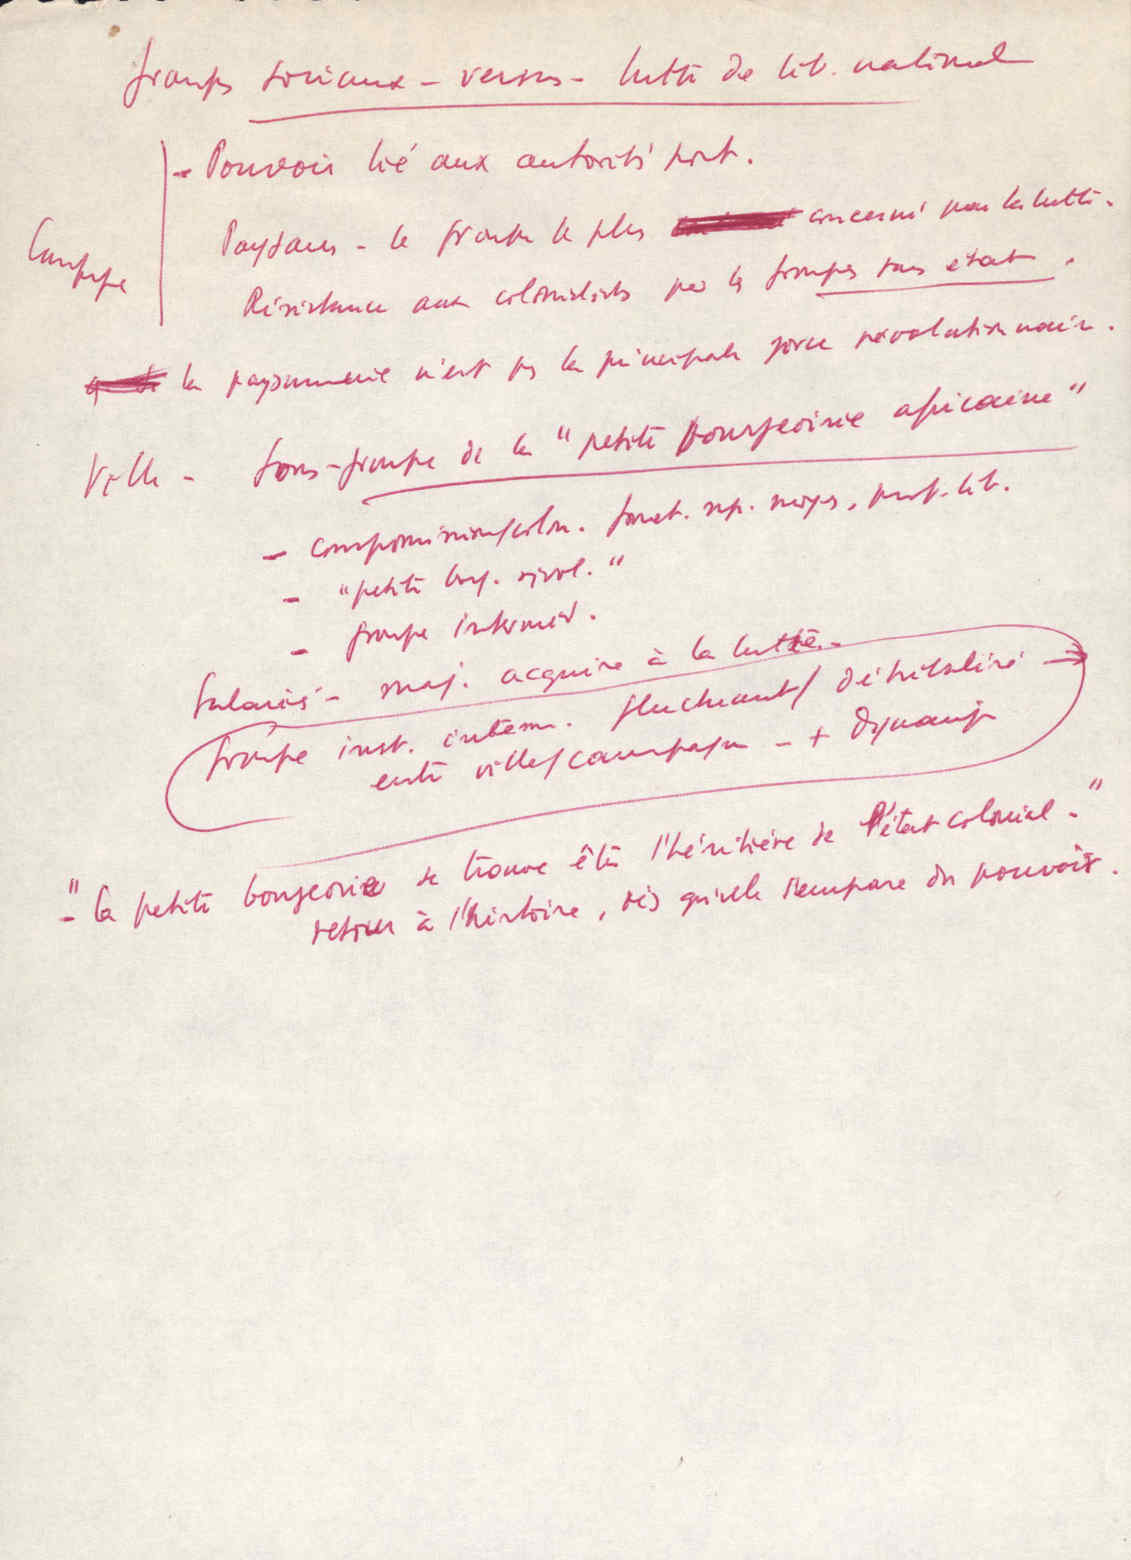 groupes sociaux - versus - lutte de lib. national
- Pouvoir lié aux autorités port.
Campagne
Paysans - le groupe le plus concerné par la lutte.
Résistance aux colonialistes par les groupes sans état.
la paysannerie n'est pas la principale force révolutionnaire.
Ville - Sous-groupe de la "petite bourgeoisie africaine"
- compromission/colon. fonct. sup. moyens, prof. lib.
- "petite bourg. révol."
- groupe interméd.
Salariés - maj. acquise à la lutte.
groupe inst. interm. fluctuant / détribalisé
entre villes/campagne - + dynamique
- "la petite bourgeoisie se trouve être l'héritière de l'état colonial."
retour à l'histoire, dès qu'elle s'empare du pouvoir.